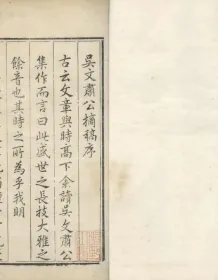 吳文肅公摘稿序
古云文章與時高下余讀吳文肅公
集作而言曰此盛世之長技大雅之
餘音也其時之所為乎我明